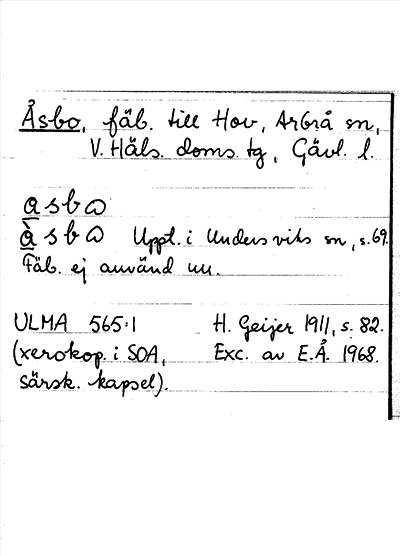 Åsbo, fäb. till Hov, Arbrå sn,
V. Häls. doms. tg, Gävl. l.
a s b ω
à s b ω Uppt. i Undersviks sn, s. 69.
Fäb. ej använd nu.
ULMA 565:1 H. Geijer 1911, s. 82.
(xerokop. i SOA, Exc. av E.Å. 1968.
särsk. kapsel).